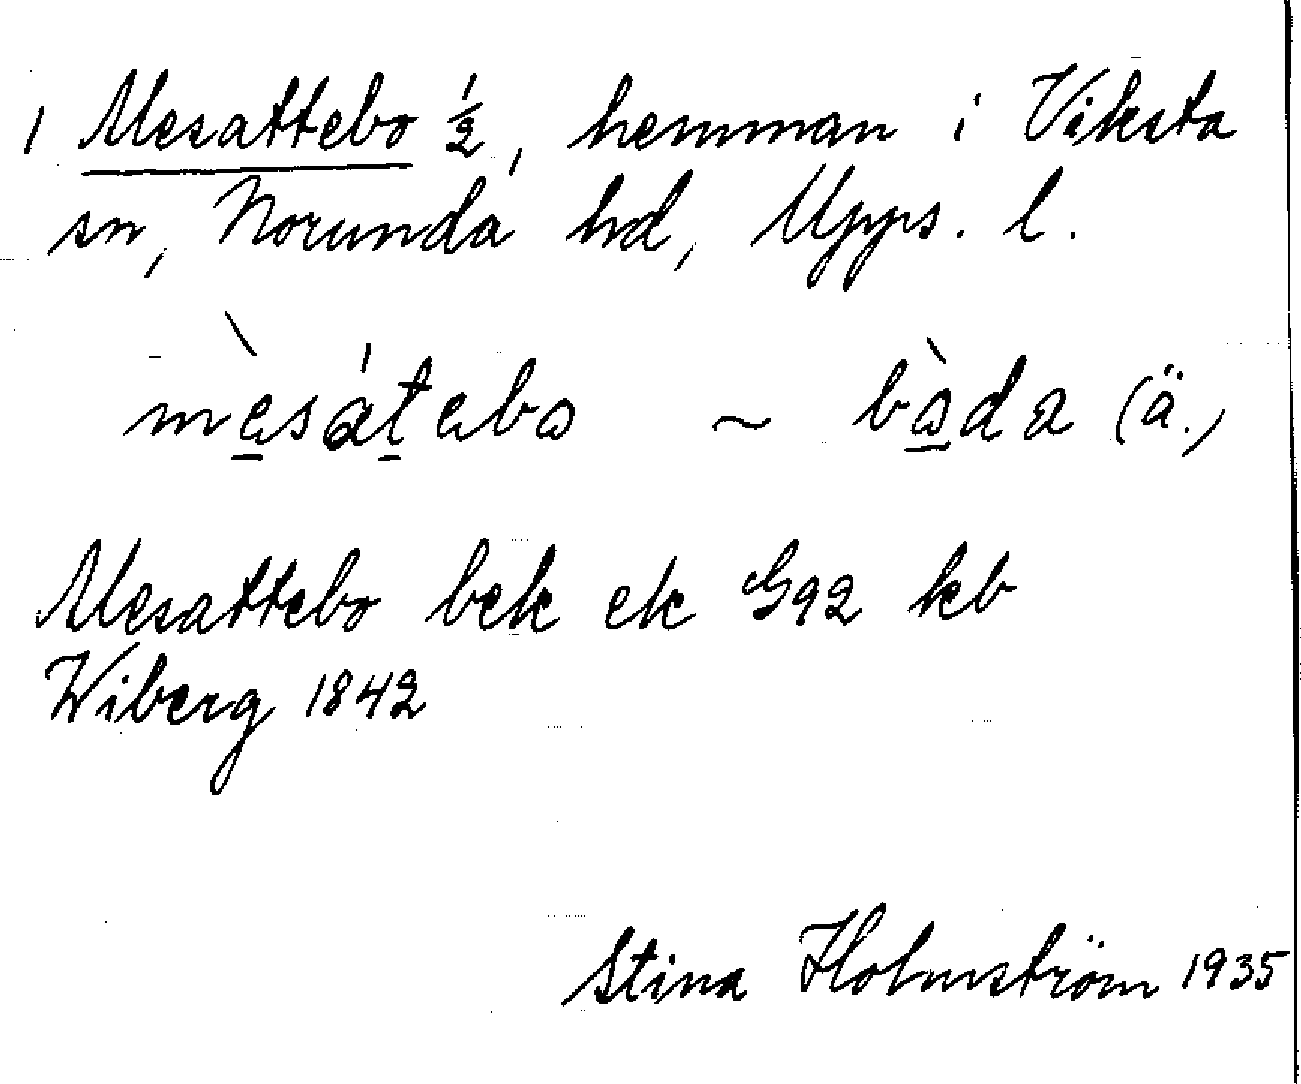 1 Mesattebo ½, hemman i Viksta
sn, Norunda hd, Upps. l.
mèsátebo ~ bòda (ä.,
Mesattebo bek ek G92 kb
Wiberg 1842
Stina Holmström 1935